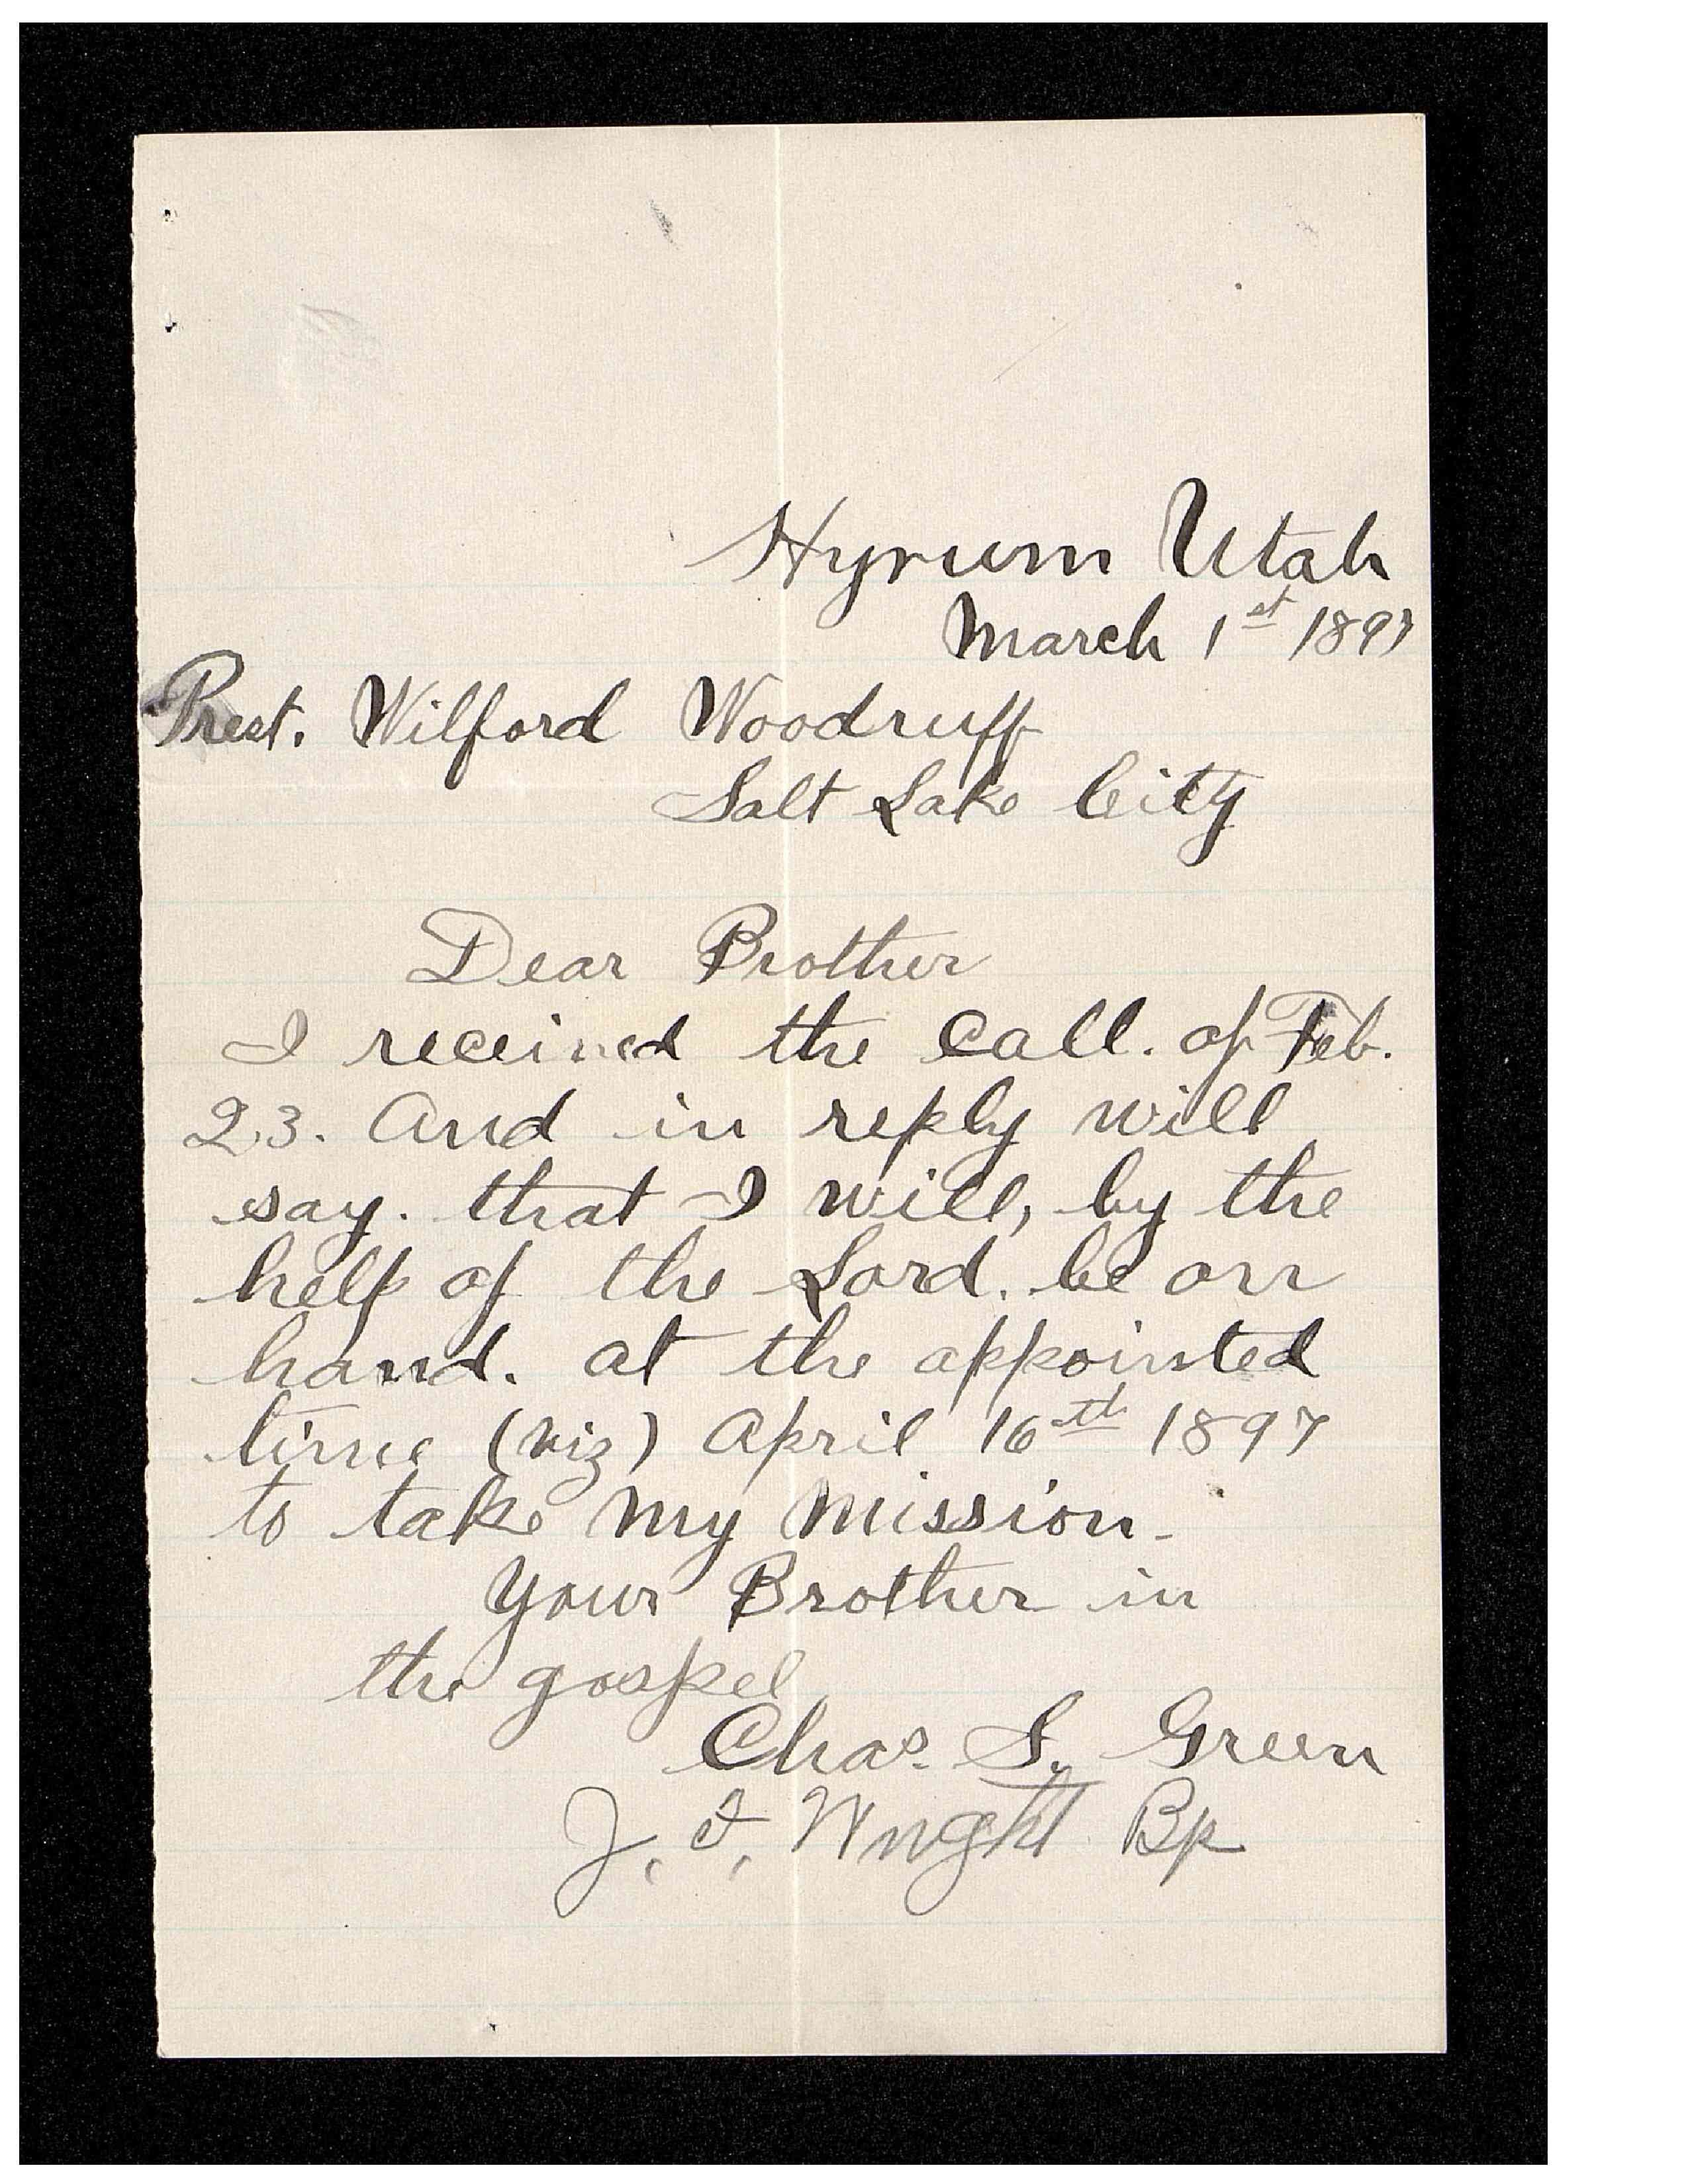 Hyrum Utah
March 1st 1897
Prest. Wilford Woodruff
Salt Lake City
Dear Brother
I received the call. of Feb.
23. And in reply will
say. that I will, by the
help of the Lord. be on
hand. at the appointed
time (viz) April 16th 1897
to take my mission.
Your Brother in
the gospel
Chas. S. Green
J. I. Wright Bp